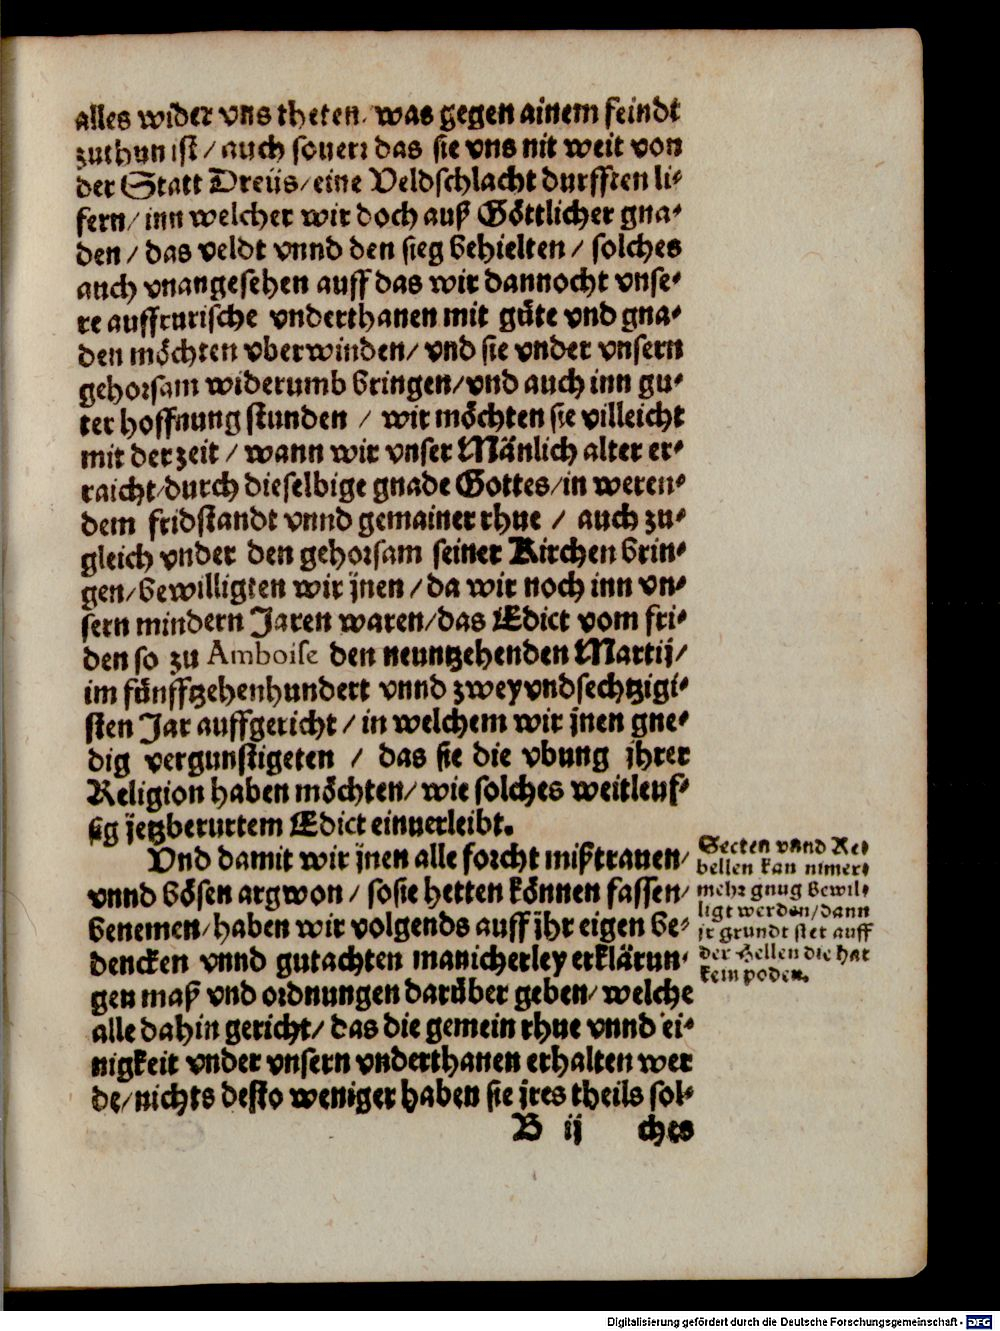 alles wider vns theten, was gegen ainem feindt
zuthun ist / auch souerr das sie vns nit weit von
der Statt Dreüs / eine Veldschlacht durfften li⸗
fern / inn welcher wir doch auß Göttlicher gna⸗
den / das veldt vnnd den sieg behielten / solches
auch vnangesehen auff das wir dannocht vnse⸗
re auffrurische vnderthanen mit güte vnd gna⸗
den möchten vberwinden / vnd sie vnder vnsern
gehorsam widerumb bringen / vnd auch inn gu⸗
ter hoffnung stunden / wir möchten sie villeicht
mit der zeit / wann wir vnser Mänlich alter er⸗
raicht / durch dieselbige gnade Gottes / in weren⸗
dem fridstandt vnnd gemainer rhue / auch zu⸗
gleich vnder den gehorsam seiner Kirchen brin⸗
gen / bewilligten wir jnen / da wir noch inn vn⸗
sern mindern Jaren waren / das Edict vom fri⸗
den so zu Amboise den neuntzehenden Martij /
im fünfftzehenhundert vnnd zweyvndsechtzigi⸗
sten Jar auffgericht / in welchem wir jnen gne⸗
dig vergunstigeten / das sie die vbung jhrer
Religion haben möchten / wie solches weitleuf⸗
fig jetzberurtem Edict einuerleibt.
Vnd damit wir jnen alle forcht mißtrauen /
vnnd bösen argwon / so sie hetten können fassen /
benemen / haben wir volgends auff jhr eigen be⸗
dencken vnnd gutachten manicherley erklärun⸗
gen maß vnd ordnungen darüber geben / welche
alle dahin gericht / das die gemein rhue vnnd ei⸗
nigkeit vnder vnsern vnderthanen erhalten wer
de / nichts desto weniger haben sie jres theils sol⸗
B ij ches
Secten vnnd Re⸗
bellen kan nimer⸗
mehr gnug bewil⸗
ligt werden / dann
jr grundt stet auff
der Hellen die hat
kein poden.
Digitalisierung gefördert durch die Deutsche Forschungsgemeinschaft - DFG